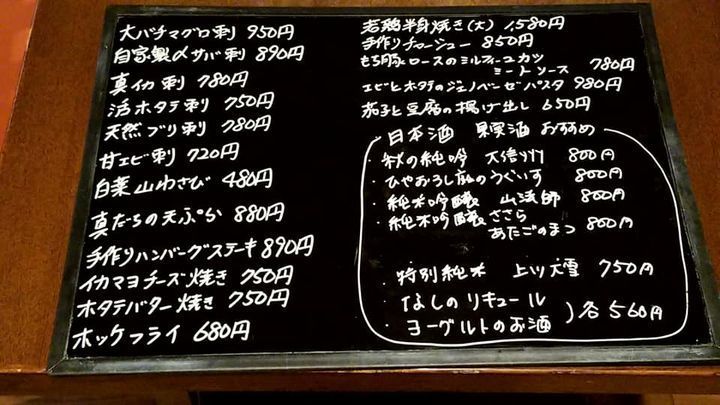 大バチマグロ刺 950円
自家製〆サバ刺 890円
真イカ刺 780円
活ホタテ刺 750円
天然ブリ刺 780円
甘エビ刺 720円
白菜山わさび 480円
真たちの天ぷら 880円
手作りハンバーグステーキ 890円
イカマヨチーズ焼き 750円
ホタテバター焼き 750円
ホッケフライ 680円
若鶏半身焼き(大) 1,580円
手作りチャーシュー 850円
もち豚ロースのミルフィーユカツ
ミートソース 780円
エビとホタテのジェノベーゼパスタ 980円
茄子と豆腐の揚げ出し 650円
日本酒 果実酒 おすすめ
・秋の純吟 大信州 800円
・ひやおろし 庭のうぐいす 800円
・純米吟醸 山法師 800円
・純米吟醸 ささら
あたごのまつ 800円
・特別純米 上川大雪 750円
・なしのリキュール
・ヨーグルトのお酒 ) 各560円